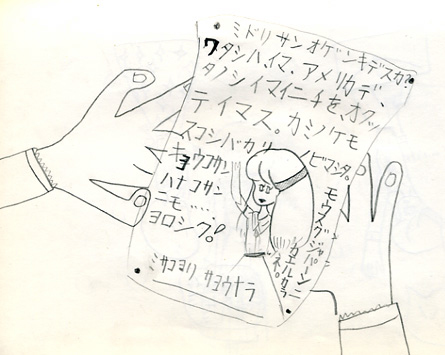 ミドリサンオゲンキデスカ?
ワタシハ、イマ、アメリカデ、
タノシイマイニチを、オクッ
テイマス。カミノケモ
スコシバカリ
ノビマシタ。
キョウコサン
ハナコサン
ニモ……
ヨロシク!
モウスグジャパーンニ
カエルカラ
ネ。
ミサコヨリ サヨウナラ